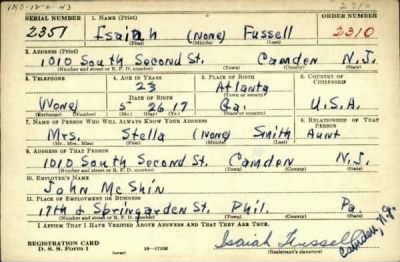 SERIAL NUMBER 1. NAME (Print) ORDER NUMBER
2357 Isaiah (None) Fussell 2310
(First) (Middle) (Last)
2. ADDRESS (Print)
1010 South Second St. Camden N.J.
(Number and street or R. F. D. number) (Town) (County) (State)
3. TELEPHONE 4. AGE IN YEARS 5. PLACE OF BIRTH 6. COUNTRY OF CITIZENSHIP
23 Atlanta
DATE OF BIRTH (Town or county)
(None) 5 26 17 Ga. U.S.A.
(Exchange) (Number) (Mo.) (Day) (Yr.) (State or country)
7. NAME OF PERSON WHO WILL ALWAYS KNOW YOUR ADDRESS 8. RELATIONSHIP OF THAT PERSON
Mrs. Stella (None) Smith Aunt
(Mr., Mrs., Miss) (First) (Middle) (Last)
9. ADDRESS OF THAT PERSON
1010 South Second St. Camden N.J.
(Number and street or R. F. D. number) (Town) (County) (State)
10. EMPLOYER'S NAME
John McShin
11. PLACE OF EMPLOYMENT OR BUSINESS
17th & Springarden St. Phil. Pa.
(Number and street or R. F. D. number) (Town) (County) (State)
I AFFIRM THAT I HAVE VERIFIED ABOVE ANSWERS AND THAT THEY ARE TRUE.
REGISTRATION CARD
D. S. S. Form 1 16—17105 Isaiah Fussell
(Registrant's signature)
Camden, N.J.